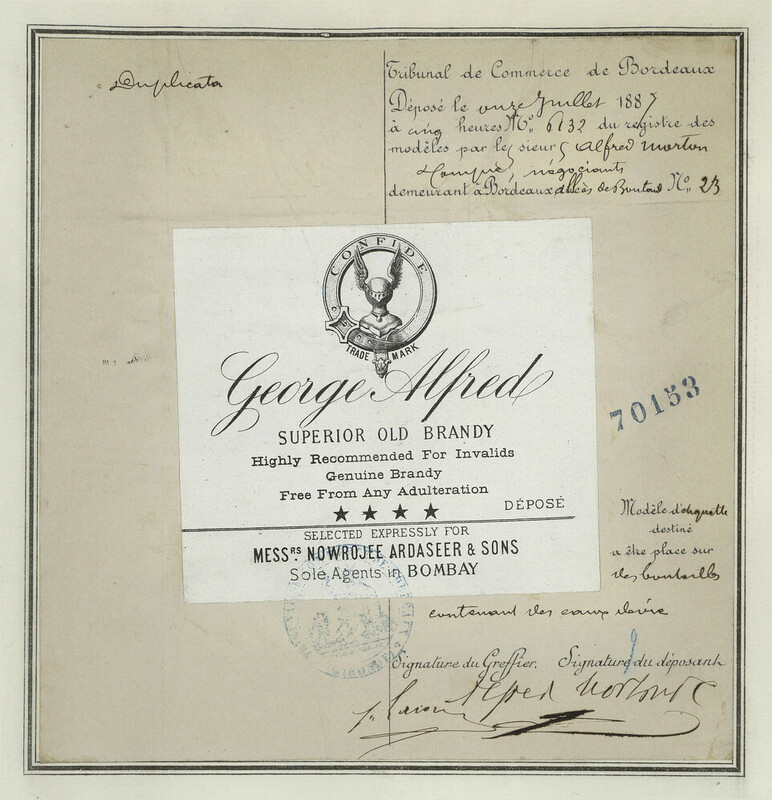 Duplicata
Tribunal de Commerce de Bordeaux
Déposé le onze Juillet 1887
à cinq heures No. 6132 du registre des
modèles par les sieurs Alfred Morton
& Compie, négociants
demeurant à Bordeaux allées de Boutaut No. 23
CONFIDE
TRADE MARK
George Alfred
SUPERIOR OLD BRANDY
Highly Recommended For Invalids
Genuine Brandy
Free From Any Adulteration
★ ★ ★ ★ DÉPOSÉ
SELECTED EXPRESSLY FOR
MESSRS. NOWROJEE ARDASEER & SONS
Sole Agents in BOMBAY
70153
Modèle d'étiquette
destiné
a être place sur
des bouteilles
contenant des eaux devie
Signature du Greffier. Signature du déposant
Alfred Morton & C